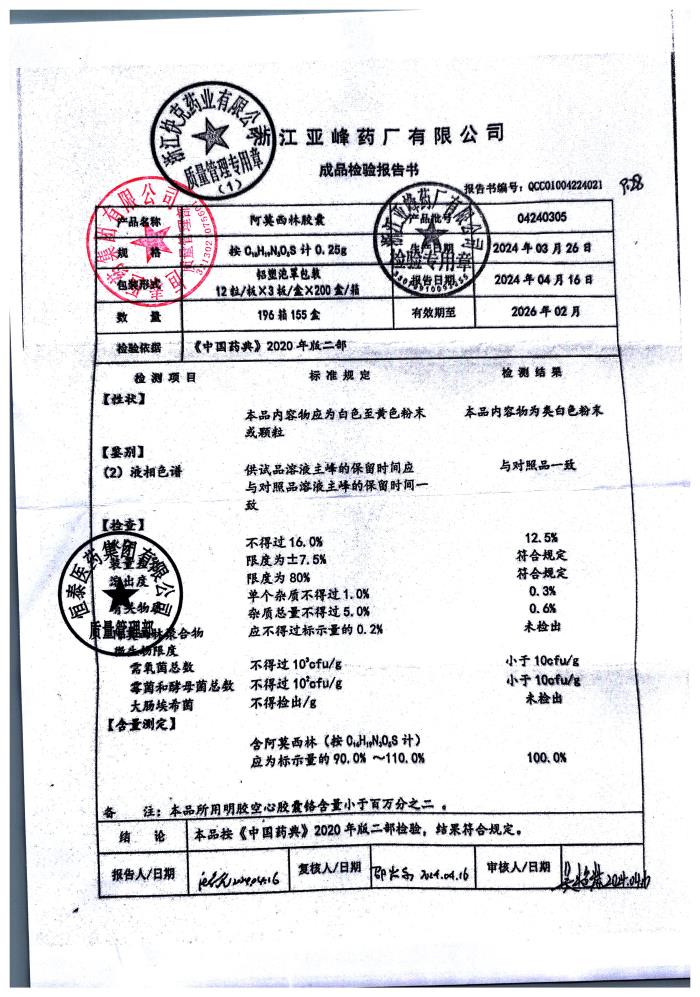 浙江亚峰药厂有限公司
成品检验报告书
报告书编号：QCC01004224021
P.28
浙江快克药业有限公司
质量管理专用章
（1）
浙江亚峰药厂有限公司
检验专用章
质量管理部
产品名称 阿莫西林胶囊 产品批号 04240305
规 格 按 C₁₆H₁₉N₃O₅S 计 0.25g 生产日期 2024 年 03 月 26 日
包装形式 铝塑泡罩包装
12 粒/板×3 板/盒×200 盒/箱 报告日期 2024 年 04 月 16 日
数 量 196 箱 155 盒 有效期至 2026 年 02 月
检验依据 《中国药典》2020 年版二部
检测项目 标准规定 检测结果
【性状】
本品内容物应为白色至黄色粉末 本品内容物为类白色粉末
或颗粒
【鉴别】
（2）液相色谱 供试品溶液主峰的保留时间应 与对照品一致
与对照品溶液主峰的保留时间一
致
【检查】
不得过 16.0% 12.5%
限度为±7.5% 符合规定
溶出度 限度为 80% 符合规定
单个杂质不得过 1.0% 0.3%
有关物质 杂质总量不得过 5.0% 0.6%
阿莫西林聚合物 应不得过标示量的 0.2% 未检出
微生物限度
需氧菌总数 不得过 10³cfu/g 小于 10cfu/g
霉菌和酵母菌总数 不得过 10²cfu/g 小于 10cfu/g
大肠埃希菌 不得检出/g 未检出
恒泰医药集团有限公司
质量管理部
【含量测定】
含阿莫西林（按 C₁₆H₁₉N₃O₅S 计）
应为标示量的 90.0% ～110.0% 100.0%
备 注：本品所用明胶空心胶囊铬含量小于百万分之二 。
结 论 本品按《中国药典》2020 年版二部检验，结果符合规定。
报告人/日期 2024.04.16 复核人/日期 2024.04.16 审核人/日期 2024.04.16